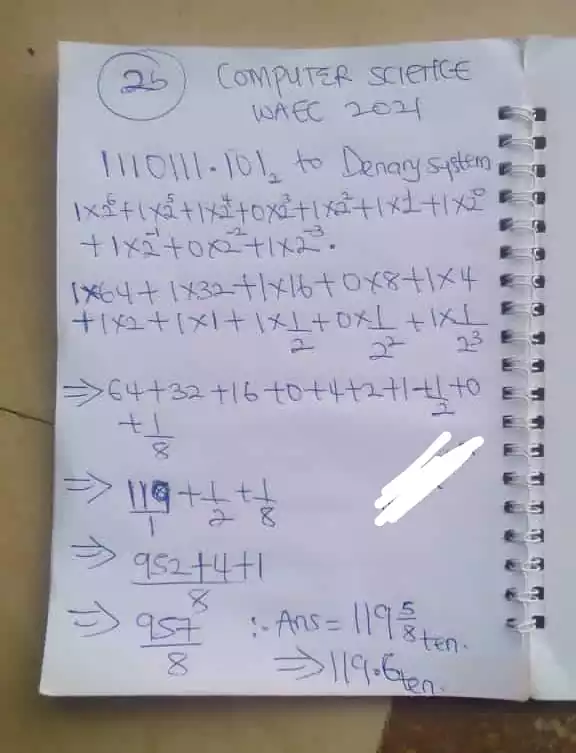 2b COMPUTER SCIENCE
WAEC 2021
1110111.101₂ to Denary system
1×2⁶+1×2⁵+1×2⁴+0×2³+1×2²+1×2¹+1×2⁰
+1×2⁻¹+0×2⁻²+1×2⁻³.
1×64+1×32+1×16+0×8+1×4
+1×2+1×1+1×1/2+0×1/2²+1×1/2³
⇒64+32+16+0+4+2+1+1/2+0
+1/8
⇒ 119/1+1/2+1/8
⇒ 952+4+1/8
⇒ 957/8 ∴ Ans = 119 5/8 ten.
⇒119.6ten.